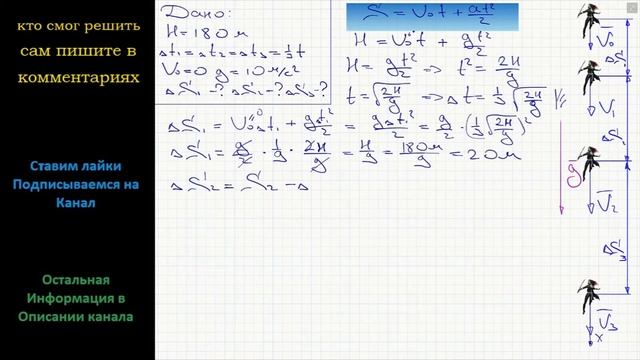 кто смог решить
сам пишите в
комментариях
Ставим лайки
Подписываемся на
Канал
Остальная
Информация в
Описании канала
Дано:
H = 180 м
Δt₁ = Δt₂ = Δt₃ = 1/3 t
V₀ = 0 g = 10 м/с²
ΔS₁ - ? ΔS₂ - ? ΔS₃ - ?
S = V₀t + at²/2
H = V₀t + gt²/2
H = gt²/2 => t² = 2H/g
t = √(2H/g) => Δt = 1/3 √(2H/g)
ΔS₁ = V₀Δt₁ + gΔt₁²/2 = gΔt₁²/2 = g/2 · (1/3 √(2H/g))²
ΔS₁ = g/2 · 1/9 · 2H/g = H/9 = 180м/9 = 20 м
ΔS₂ = S₂ - Δ
V₀
ΔS₁
V₁
g
V₂
ΔS₃
V₃
x